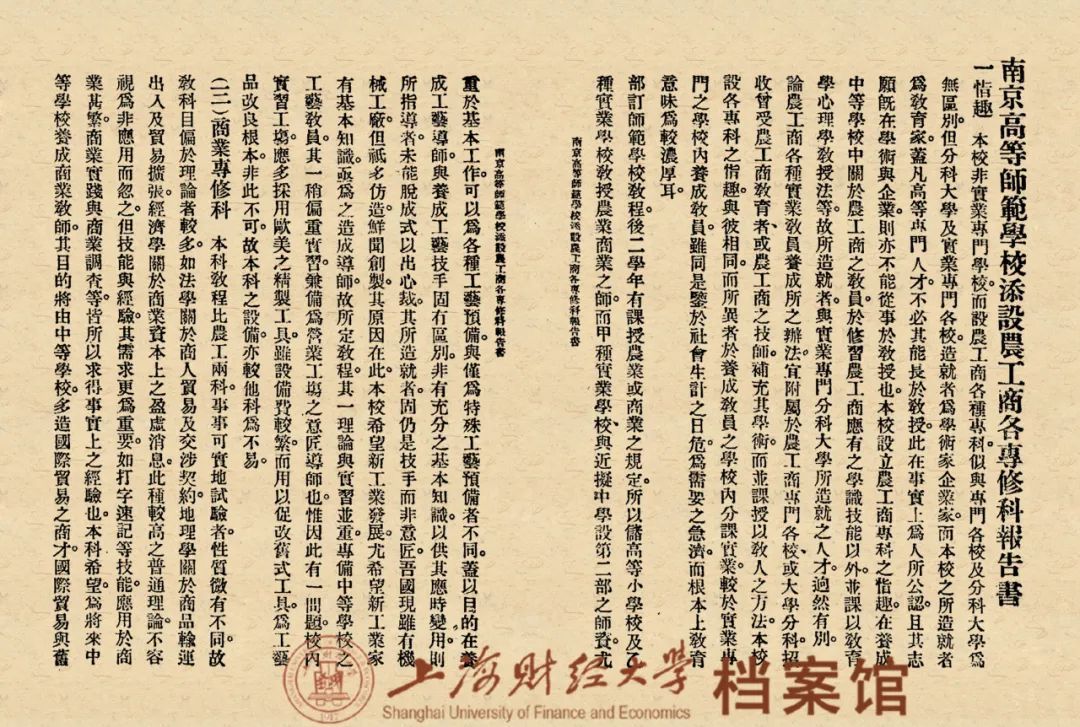 南京高等師範學校添設農工商各專修科報告書
一恉趣　本校非實業專門學校。而設農工商各種專科。似與專門各校及分科大學爲
無區別。但分科大學及實業專門各校。造就者爲學術家企業家。而本校之所造就者
爲敎育家。蓋凡高等專門人才。不必其能長於敎授。此在事實上爲人所公認。且其志
願旣在學術與企業。則亦不能從事於敎授也。本校設立農工商專科之恉趣。在養成
中等學校中關於農工商之敎員。於修習農工商應有之學識技能以外。並課以敎育
學心理學敎授法等。故所造就者。與實業專門分科大學所造就之人才。逈然有別。
論農工商各種實業敎員養成所之辦法。宜附屬於農工商專門各校。或大學分科。招
收曾受農工商敎育者。或農工商之技師。補充其學術。而並課授以敎人之方法。本校
設各專科之恉趣。與彼相同。而所異者。於養成敎員之學校內分課實業。較於實業專
門之學校內養成敎員。雖同是鑒於社會生計之日危。爲需要之急濟。而根本上敎育
意味爲較濃厚耳。
部訂師範學校敎程。後二學年有課授農業或商業之規定。所以儲高等小學校及乙
種實業學校敎授農業商業之師。而甲種實業學校。與近擬中學設第二部之師資。尤
南京高等師範學校添設農工商各專修科報告書
南京高等師範學校添設農工商各專修科報告書
重於基本工作。可以爲各種工藝預備。與僅爲特殊工藝預備者不同。蓋以目的在養
成工藝導師。與養成工藝技手固有區別。非有充分之基本知識。以供其應時變用。則
所指導者。未能脫成式以出心裁。其所造就者。固仍是技手而非意匠。吾國現雖有機
械工廠。但祇多仿造。鮮聞創製。其原因在此。本校希望新工業發展。尤希望新工業家
有基本知識。亟爲之造成導師。故所定敎程。其一理論與實習並重。專備中等學校之
工藝敎員。其一稍偏重實習。兼備爲營業工塲之意匠導師也。惟因此有一問題。校內
實習工塲。應多採用歐美之精製工具。雖設備費較繁。而用以促改舊式工具。爲工藝
品改良根本。非此不可。故本科之設備。亦較他科爲不易。
（二二）商業專修科　本科敎程。比農工兩科。事事可實地試驗者。性質微有不同。故
敎科目偏於理論者較多。如法學關於商人貿易及交涉契約。地理學關於商品輸運
出入及貿易擴張。經濟學關於商業資本上之盈虛消息。此種較高之普通理論。不容
視爲非應用而忽之。但技能與經驗。其需求更爲重要。如打字速記等技能。應用於商
業甚繁。商業實踐與商業調查等。皆所以求得事實上之經驗也。本科希望爲將來中
等學校養成商業敎師。其目的將由中等學校。多造國際貿易之商才。國際貿易與舊
上海财经大学 档案馆
Shanghai University of Finance and Economics
1917